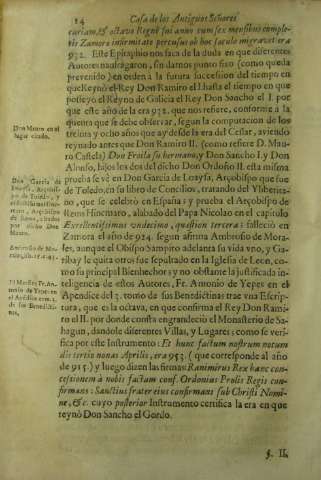 14 Casa de los Antiguos Señores
curiam, & octavo Regnò fui anno cum sex mensibus comple-
tis Zamora infirmitate percusus ob hoc saculo migravit era
932. Este Epitaphio nos saca de la duda en que diferentes
Autores naufragaron, sin darnos punto fixo (como queda
prevenido) en orden a la futura successsion del tiempo en
que Reynò el Rey Don Ramiro el I. hasta el tiempo en que
posseyo el Reyno de Galicia el Rey Don Sancho el I. por
que este año de la era 932. que nos refiere, conforme a la
quenta que se debe observar, segun la computacion de los
treinta y ocho años que ay desde la era del Cesar, aviendo
reynado antes que Don Ramiro II. (como refiere D. Mau
Don Mauro en el
lugar citado.
ro Castela) Don Froila su hermano, y Don Sancho I. y Don
Alonso, hijos los dos del dicho Don Ordoño II. esta misma
prueba se vè en Don Garcia de Loaysa, Arçobispo que fue
Don Garcia de
de Toledo, en su libro de Concilios, tratando del Yliberita-
no, que se celebrò en España: y prueba el Arçobispo de
Rems Hincmaro, alabado del Papa Nicolao en el capitulo
Excellentissimus undecimo, quæstion tercera: falleciò en
Zamora el año de 924. segun afirma Ambrosio de Mora-
les, aunque el Obispo Sampiro adelanta su vida uno, y Ga-
Ambrosio de Mo-
ribay le quita otros fue sepultado en la Iglesia de Leon, co-
mo su principal Bienhechor: y no obstante la justificada in-
teligencia de estos Autores, Fr. Antonio de Yepes en el
El Maestro Fr. An-
tonio de Yepes en
Apendice del 3. tomo de sus Benedictinas trae una Escrip-
tura, que es la octava, en que confirma el Rey Don Rami-
ro el II. por donde consta engrandeciò el Monasterio de Sa-
hagun, dandole diferentes Villas, y Lugares: como se veri-
fica por este Instrumento: Et hunc factum nostrum notum
dis tertio nonas Aprilis, era 953. (que corresponde al año
de 915.) y luego dizen las firmas Ranimirus Rex hanc con-
cessionem à nobis factam conf. Ordonius Prolis Regis con-
firmans: Sanctius frater eius confirmans sub Christi Nomi-
ne, & c. cuyo posterior Instrumento certifica la era en que
reynò Don Sancho el Gordo.
§. II.